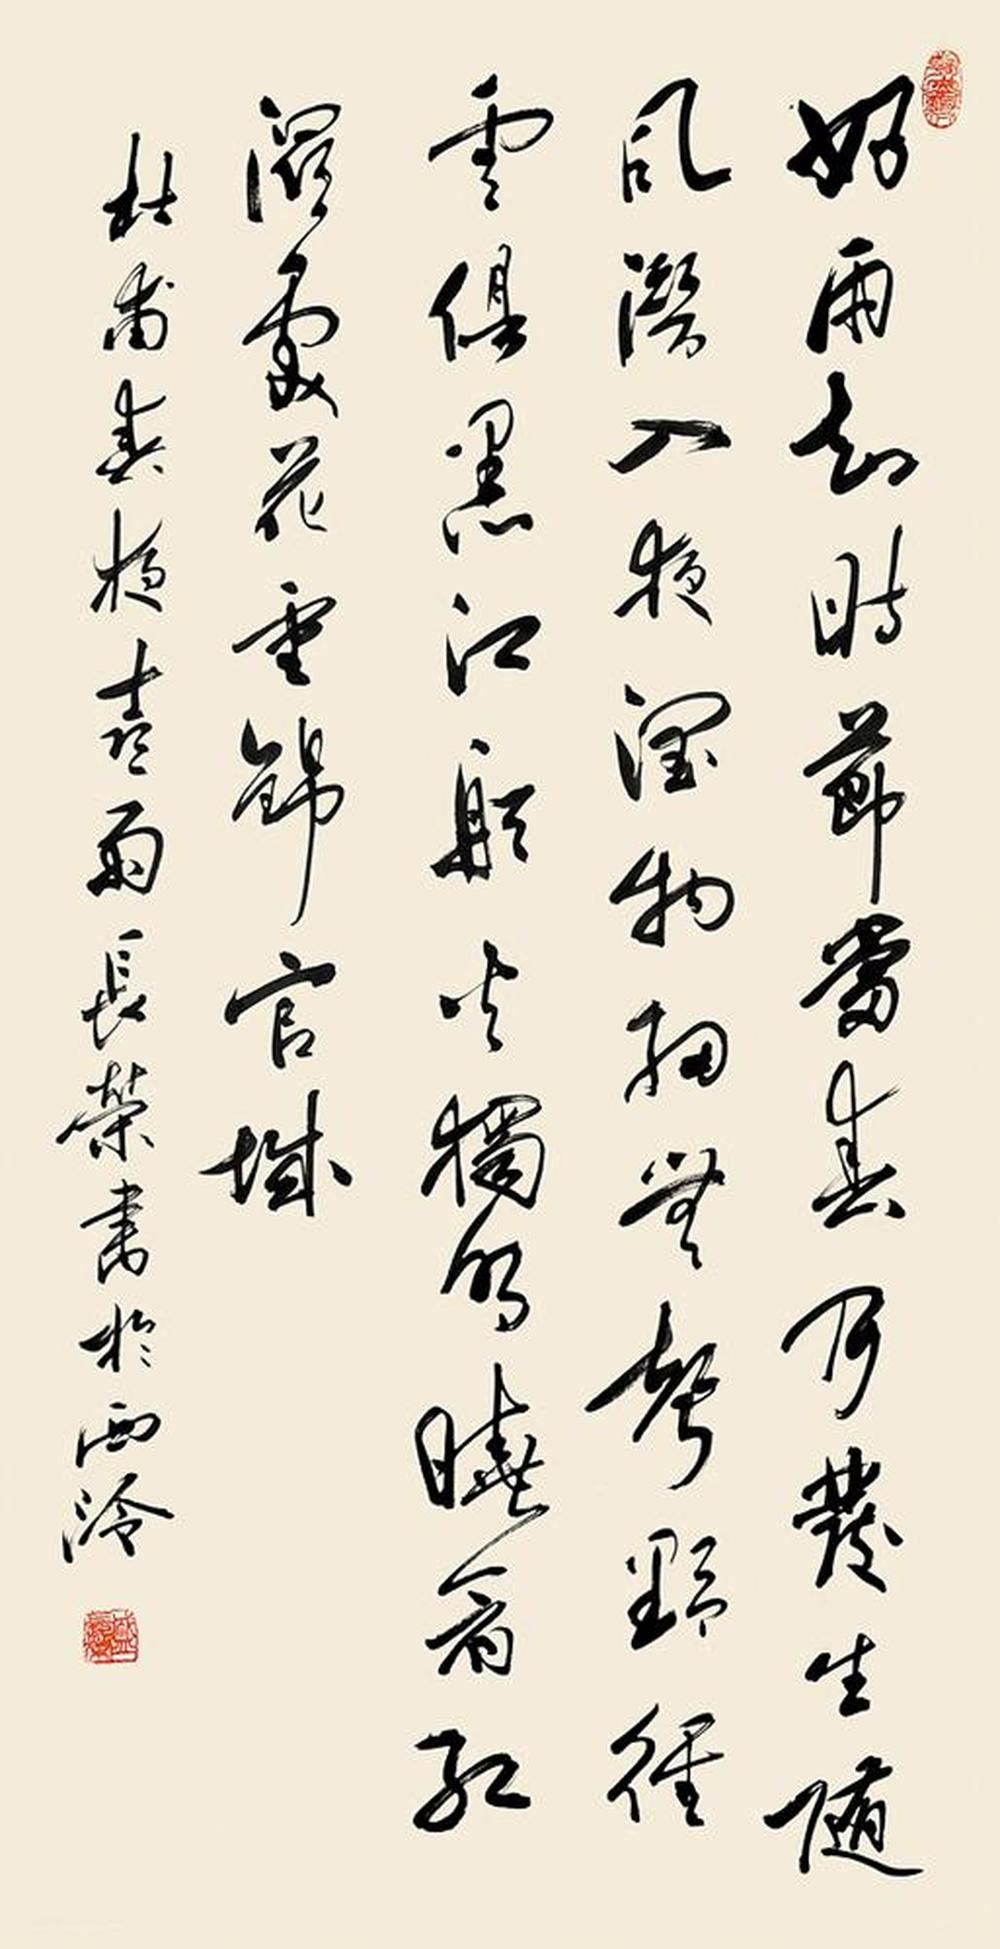 好雨知時節當春乃發生随
風潛入夜潤物細無聲野徑
雲俱黑江船火獨明曉看紅
濕處花重錦官城
杜甫春夜喜雨長榮書於西泠